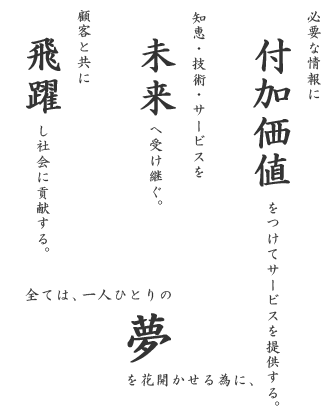 必要な情報に
付加価値
をつけてサービスを提供する。
知恵・技術・サービスを
未来
へ受け継ぐ。
顧客と共に
飛躍
し社会に貢献する。
全ては、一人ひとりの
夢
を花開かせる為に、